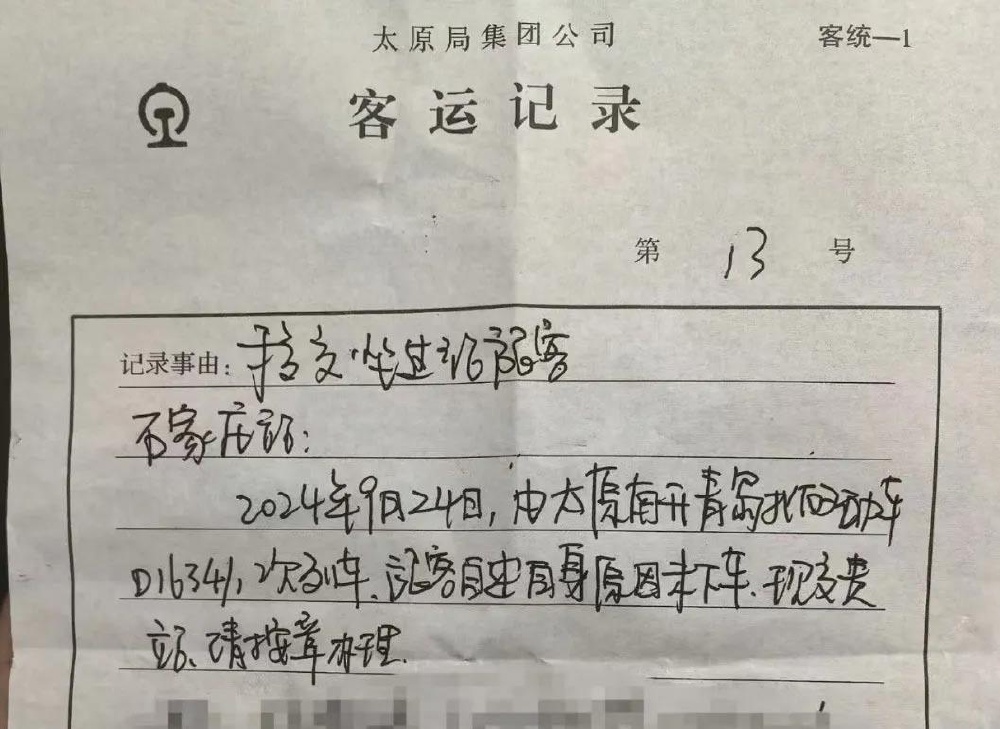 太原局集团公司 客统—1
客运记录
第 13 号
记录事由：移交坐过站旅客
石家庄站：
2024年9月24日，由太原南开青岛北的动车
D1634/1次列车、旅客自述自身原因未下车、现交贵
站、请按章办理.